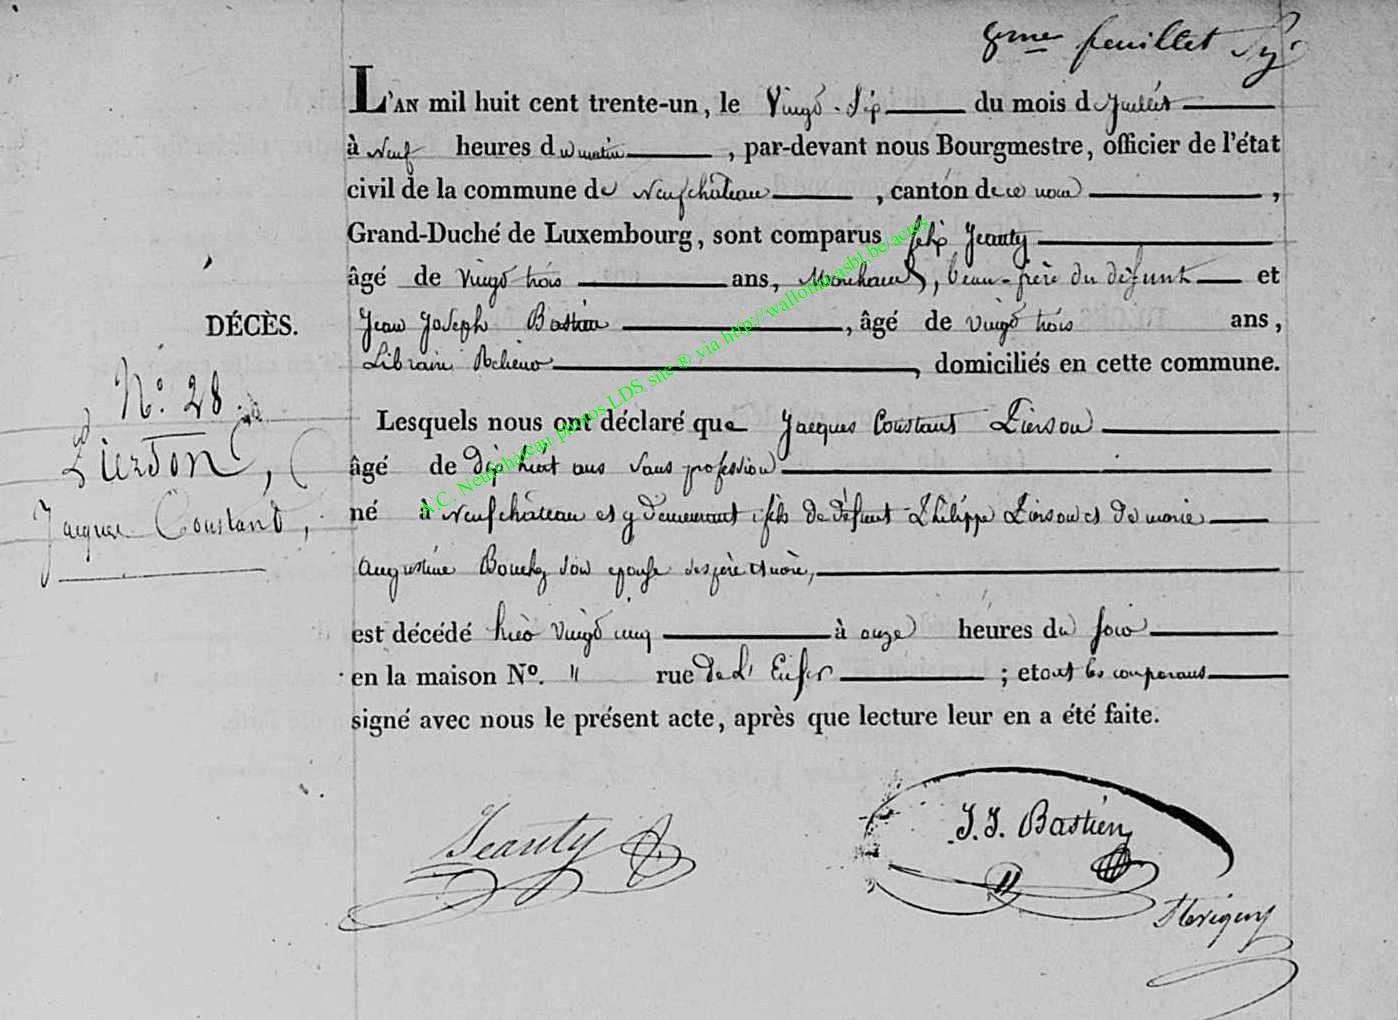 8me feuillet
L'AN mil huit cent trente-un, le Vingt-Six du mois de Juillet
à neuf heures du matin, par-devant nous Bourgmestre, officier de l'état
civil de la commune de Neufchâteau, canton de ce nom,
Grand-Duché de Luxembourg, sont comparus Jeanty
âgé de Vingt trois ans, Marchand, beau-frère du défunt et
DÉCÈS.
Jean Joseph Bastien, âgé de vingt trois ans,
Libraire Relieur, domiciliés en cette commune.
N°. 28
Pierson,
Jacques Constant,
Lesquels nous ont déclaré que Jacques Constant Pierson
âgé de dix huit ans Sans profession
né à Neufchâteau et y demeurant, fils de défunt Philippe Pierson et de marie
Augustine Bouchez son épouse ses père et mère,
est décédé hier vingt cinq à onze heures du soir
en la maison N°. " rue de L'Enfer ; et ont les comparans
signé avec nous le présent acte, après que lecture leur en a été faite.
Jeanty
J. J. Bastien
A.C. Neufchateau photos LDS site ® via http://wallonica.asbl.be/actes